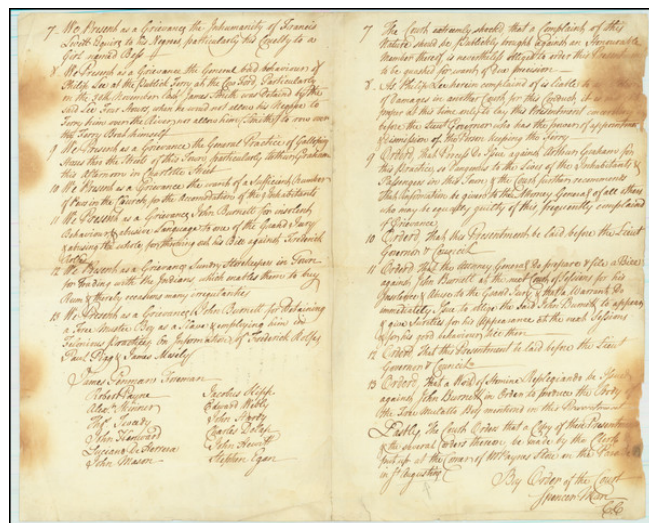 7 We Present as a Grievance the Inhumanity of Francis
Levett Esquire to his Negroes, particularly his Cruelty to a
Girl named Bess
8 We Present as a Grievance the General bad behaviour of
Philip Lee at the Publick Ferry at the Cow Ford Particularly
on the November last James Smith was Detained by the
said Lee Four Hours, when he would not allow his Negroe to
Ferry him over the River, nor allow him Smith to row over
the Ferry Boat himself
9 We Present as a Grievance the General Practice of Galloping
Horses thro' the Streets of this Town particularly Arthur Graham
this afternoon in Charlotte Street
10 We Present as a Grievance the want of a Sufficient Number
of Pews in the Church, for the Accomodation of the Inhabitants
11 We Present as a Grievance John Burnett for insolent
Behaviour & abusive Language to one of the Grand Jury
& abusing the whole, for throwing out his Bill against Frederick
Rolfes
12 We Present as a Grievance Sundry Storekeepers in Town
for Trading with the Indians, which enables them to buy
Rum & thereby occasions many irregularities
13 We Present as a Grievance John Burnett for Detaining
a Free Mulatto Boy as a Slave & employing him in
Felonious practices, on Information of Frederick Rolfes,
Paul Pigg & James Mosely
James Penman Foreman
Robert Payne
Alexr. Skinner
Thos.
John
Luciano De Herrera
John Mason
Jacobus Kipp
Edward
John
Charles Delap
John Hewitt
Stephen Egan
7 The Court extremely shocked that a Complaint of this
Nature should be Publickly brought against an Honourable
Member thereof, is nevertheless obliged to order this Present
to be quashed for want of due precision
8 As Philip Lee herein complained of is liable to
of Damages in another Court for this Conduct, it is
proper at this time only to lay this Presentment
before the Lieut Governor who has the power of appointment
& dismission of the Person keeping the Ferry
9 Orderd, That Process do Issue against Arthur Graham for
this Practice, so dangerous to the Lives of the Inhabitants &
Passengers in this Town & the Court further recommends
that Information be given to the Attorney General of all others
who may be equally guilty of this frequently complained
of Grievance
10 Orderd That this Presentment be laid before the Lieut
Governor & Council
11 Orderd That the Attorney General do prepare & file a Bill
against John Burnett at the next Court of Sessions for his
Insolence & Abuse to the Grand Jury & that a Warrant do
immediately Issue to oblige the said John Burnett to appear
& give Securities for his Appearance at the next Sessions
& for his good behaviour 'till then
12 Orderd That this Presentment be laid before the Lieut
Governor & Council
13 Orderd, That a Writ of Homine Replegiando be Issued
against John Burnett in Order to produce the Body of
the Free Mulatto Boy mentioned in this Presentment
Lastly The Court Orders that a Copy of these Presentments
& the several Orders thereon be made by the Clerk
& put up at the Corner of Mr Paynes Store on the Parade
in St Augustine
By Order of the Court
Spencer Man
CC